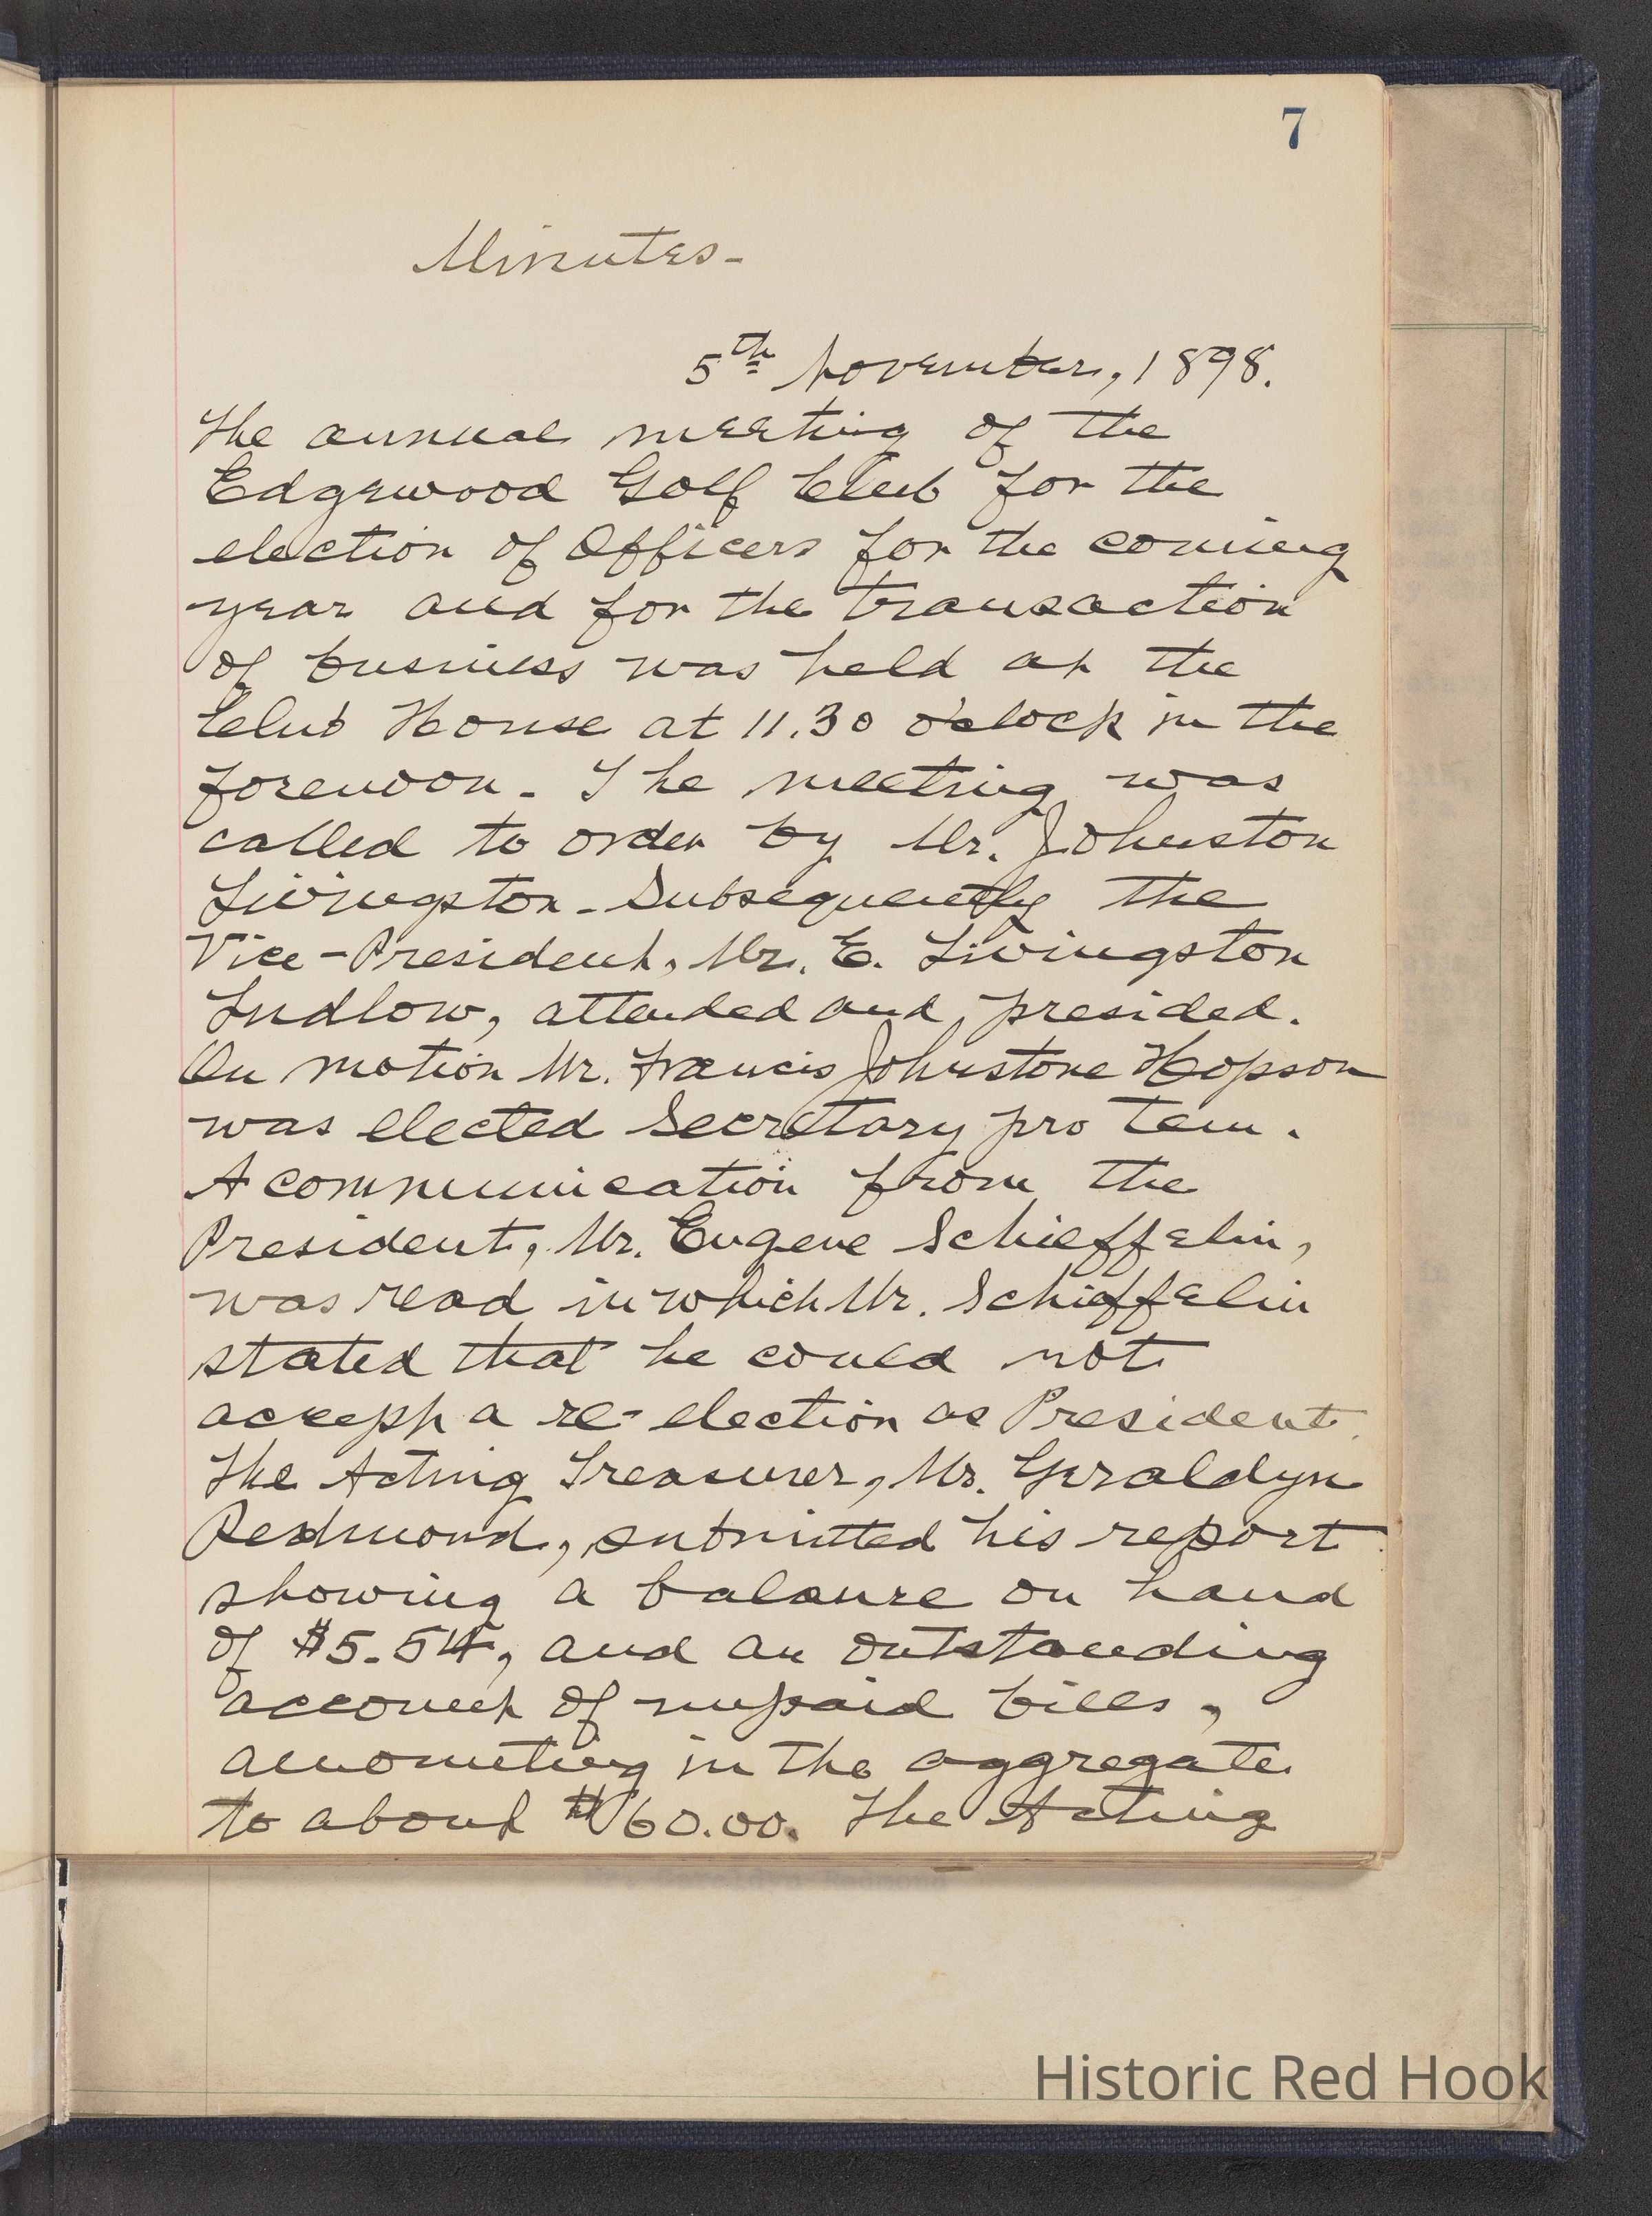 7
Minutes-
5th November, 1898.
The annual meeting of the
Edgewood Golf Club for the
election of Officers for the coming
year and for the transaction
of business was held at the
Club House at 11.30 o'clock in the
forenoon. The meeting was
called to order by Mr. Johnston
Livingston. Subsequently the
Vice-President, Mr. E. Livingston
Ludlow, attended and presided.
On motion Mr. Francis Johnstone Hopson
was elected Secretary pro tem.
A communication from the
President, Mr. Eugene Schieffelin,
was read in which Mr. Schieffelin
stated that he could not
accept a re-election as President.
The Acting Treasurer, Mr. Geraldyn
Redmond, submitted his report
showing a balance on hand
of $5.54, and an outstanding
account of unpaid bills,
amounting in the aggregate
to about $60.00. The Acting
Mr. Geraldyn Redmond
Historic Red Hook